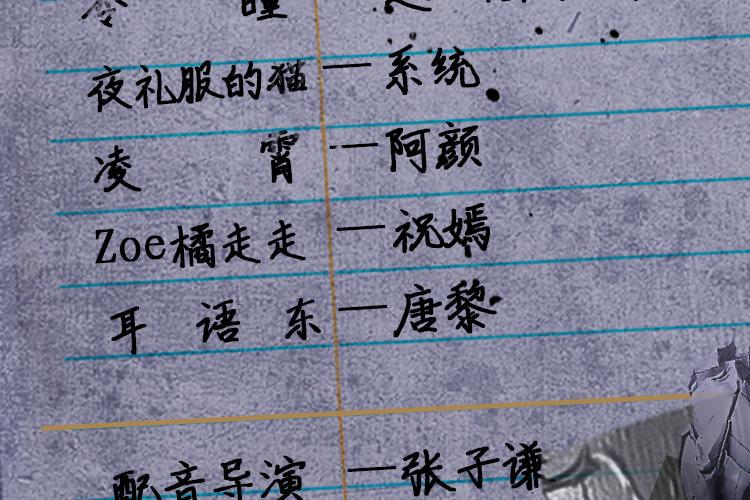 夜礼服的猫——系统
凌霄——阿颜
Zoe橘走走——祝嫣
耳语东——唐黎
配音导演——张子谦